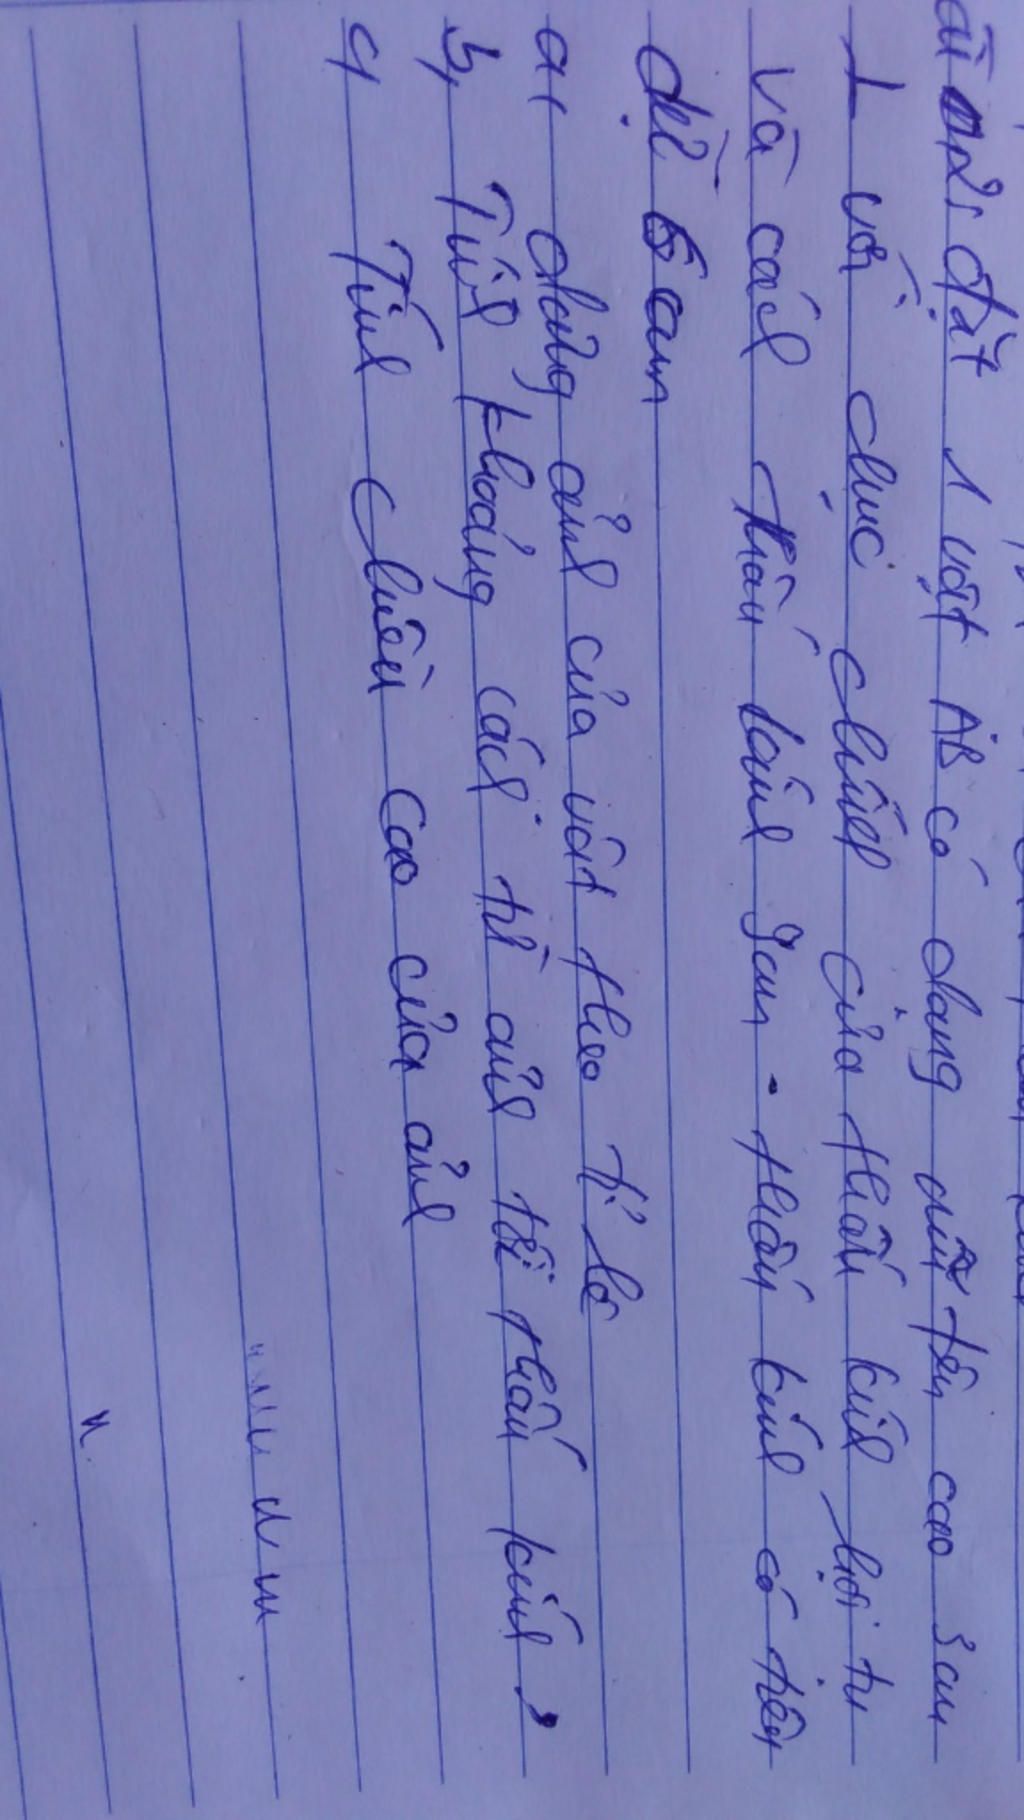 đặt 1 vật AB có dạng mũi tên cao 3cm
⊥ với trục chính của thấu kính hội tụ
và cách thấu kính 9cm. thấu kính có tiêu
cự 6 cm
a, dựng ảnh của vật theo tỉ lệ
b, Tính khoảng cách từ ảnh tới thấu kính,
c, Tính chiều cao của ảnh